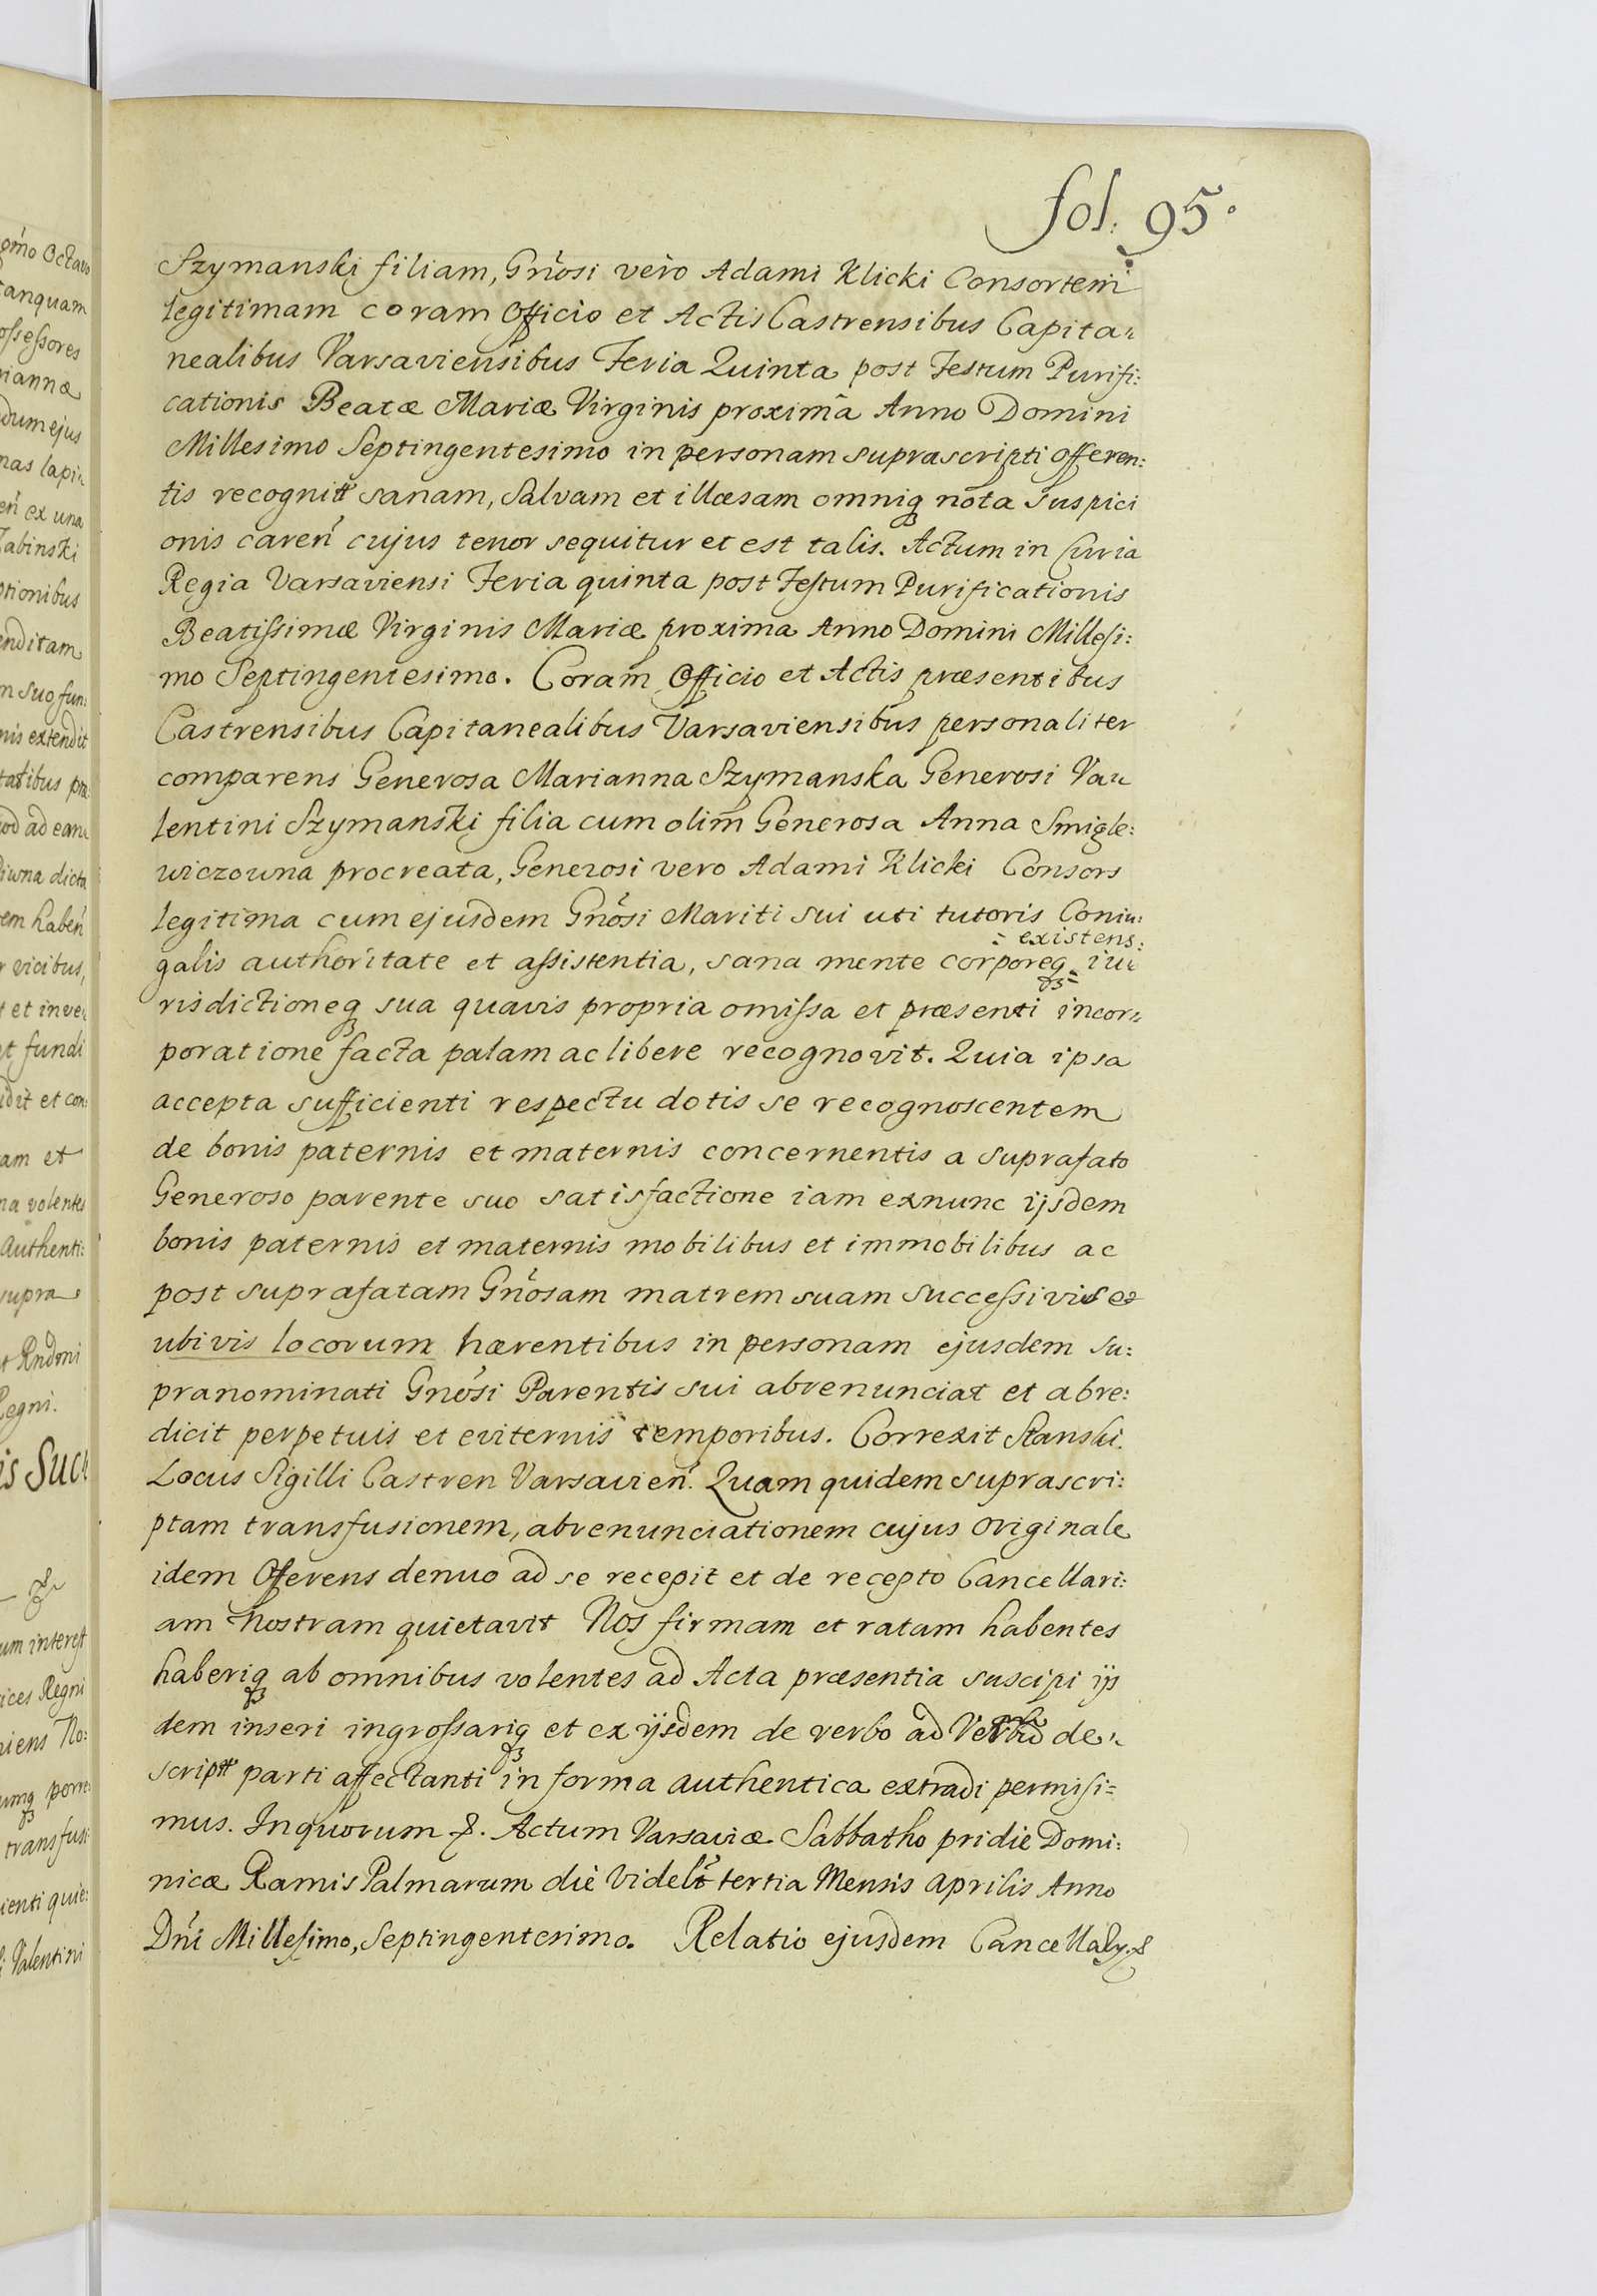 fol: 95.
Szymanski filiam, Gnosi vero Adami Klicki Consortem
legitimam coram Officio et Actis Castrensibus Capita:
nealibus Varsaviensibus Feria Quinta post Festum Purifi:
cationis Beatæ Mariæ Virginis proxima Anno Domini
Millesimo Septingentesimo in personam suprascripti offeren:
tis recognitt sanam, salvam et illæsam omniq nota suspici
onis caren cujus tenor sequitur et est talis. Actum in Curia
Regia Varsaviensi Feria quinta post Festum Purificationis
Beatissimæ Virginis Mariæ proxima Anno Domini Millesi:
mo Septingentesimo. Coram Officio et Actis præsentibus
Castrensibus Capitanealibus Varsaviensibus personaliter
comparens Generosa Marianna Szymanska Generosi Va:
lentini Szymanski filia cum olim Generosa Anna Smigle:
wiczowna procreata, Generosi vero Adami Klicki Consors
legitima cum ejusdem Gnosi Mariti sui uti tutoris Coniu:
existens:
galis authoritate et assistentia, sana mente corporeq iu:
risdictioneq sua quavis propria omissa et præsenti incor:
poratione facta palam ac libere recognovit. Quia ipsa
accepta sufficienti respectu dotis se recognoscentem
de bonis paternis et maternis concernentis a suprafato
Generoso parente suo satisfactione iam exnunc ijsdem
bonis paternis et maternis mobilibus et immobilibus ac
post suprafatam Gnosam matrem suam successivis et
ubivis locorum hærentibus in personam ejusdem su:
pranominati Gnosi Parentis sui abrenunciat et abre:
dicit perpetuis et eviternis temporibus. Correxit Stanski.
Locus Sigilli Castren Varsavien. Quam quidem suprascri:
ptam transfusionem, abrenunciationem cujus originale
idem Offerens denuo ad se recepit et de recepto Cancellari:
am nostram quietavit Nos firmam et ratam habentes
haberiq ab omnibus volentes ad Acta præsentia suscipi ijs
dem inseri ingrossariq et ex ijsdem de verbo ad Verbum de:
scriptt parti affectanti in forma authentica extradi permisi=
mus. In quorum &. Actum Varsaviæ Sabbatho pridie Domi:
nicæ Ramis Palmarum die videlt tertia Mensis Aprilis Anno
Dni Millesimo, Septingentesimo. Relatio ejusdem